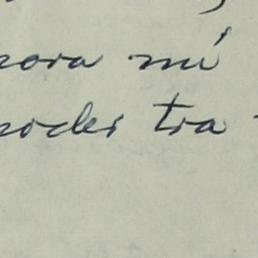 nora mí
poder tra